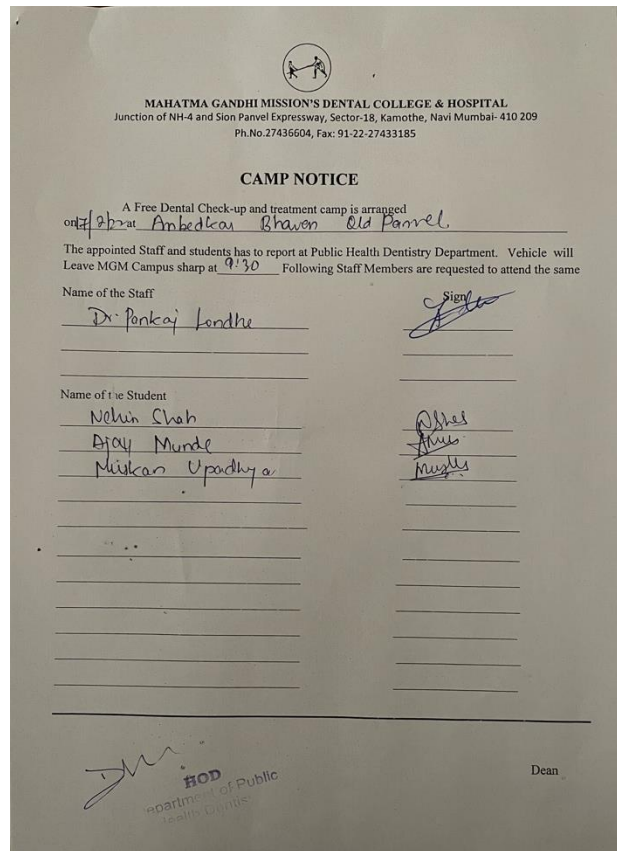 MAHATMA GANDHI MISSION'S DENTAL COLLEGE & HOSPITAL
Junction of NH-4 and Sion Panvel Expressway, Sector-18, Kamothe, Navi Mumbai- 410 209
Ph.No.27436604, Fax: 91-22-27433185
CAMP NOTICE
A Free Dental Check-up and treatment camp is arranged
on at Ambedkar Bhavan Old Panvel.
The appointed Staff and students has to report at Public Health Dentistry Department. Vehicle will
Leave MGM Campus sharp at 9:30 Following Staff Members are requested to attend the same
Name of the Staff Sign
Dr. Pankaj Londhe
Name of the Student
Shah
Ajay Munde
Muskan Upadhya
HOD
Department of Public
Health Dentis
Dean